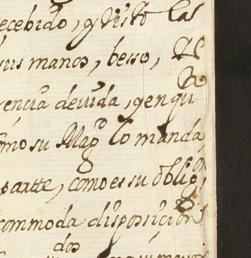 ecebido, y visto las
sus manos, besso,
rencia deuida, y en qu
omo su Mag.d lo manda
parte, como es su oblig
commoda disposicion
dos